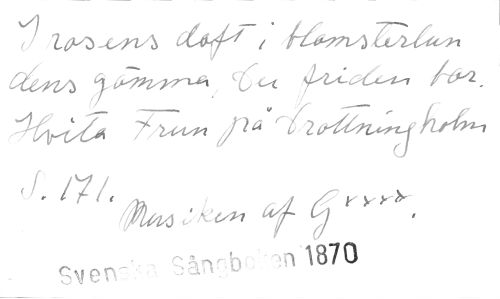 I rosens doft i blomsterlun
dens gömma, Du friden bar.
Hvita Frun på Drottningholm
S. 171.
Musiken af G****.
Svenska Sångboken 1870